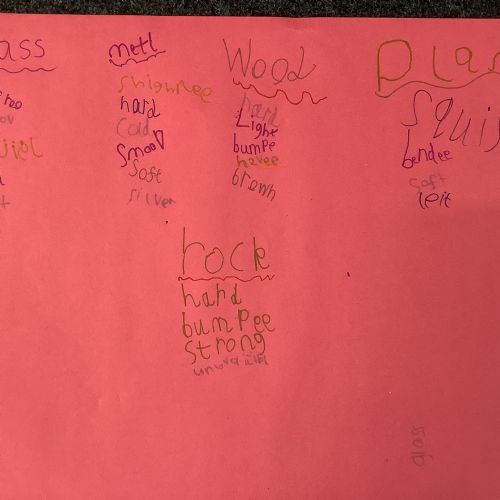 ass
metl
shignnee
hard
cold
smooV
soft
silver
Wood
hard
Light
bumpe
havee
brown
plas
squis
bendee
soft
leit
rock
hard
bumpee
strong
glass